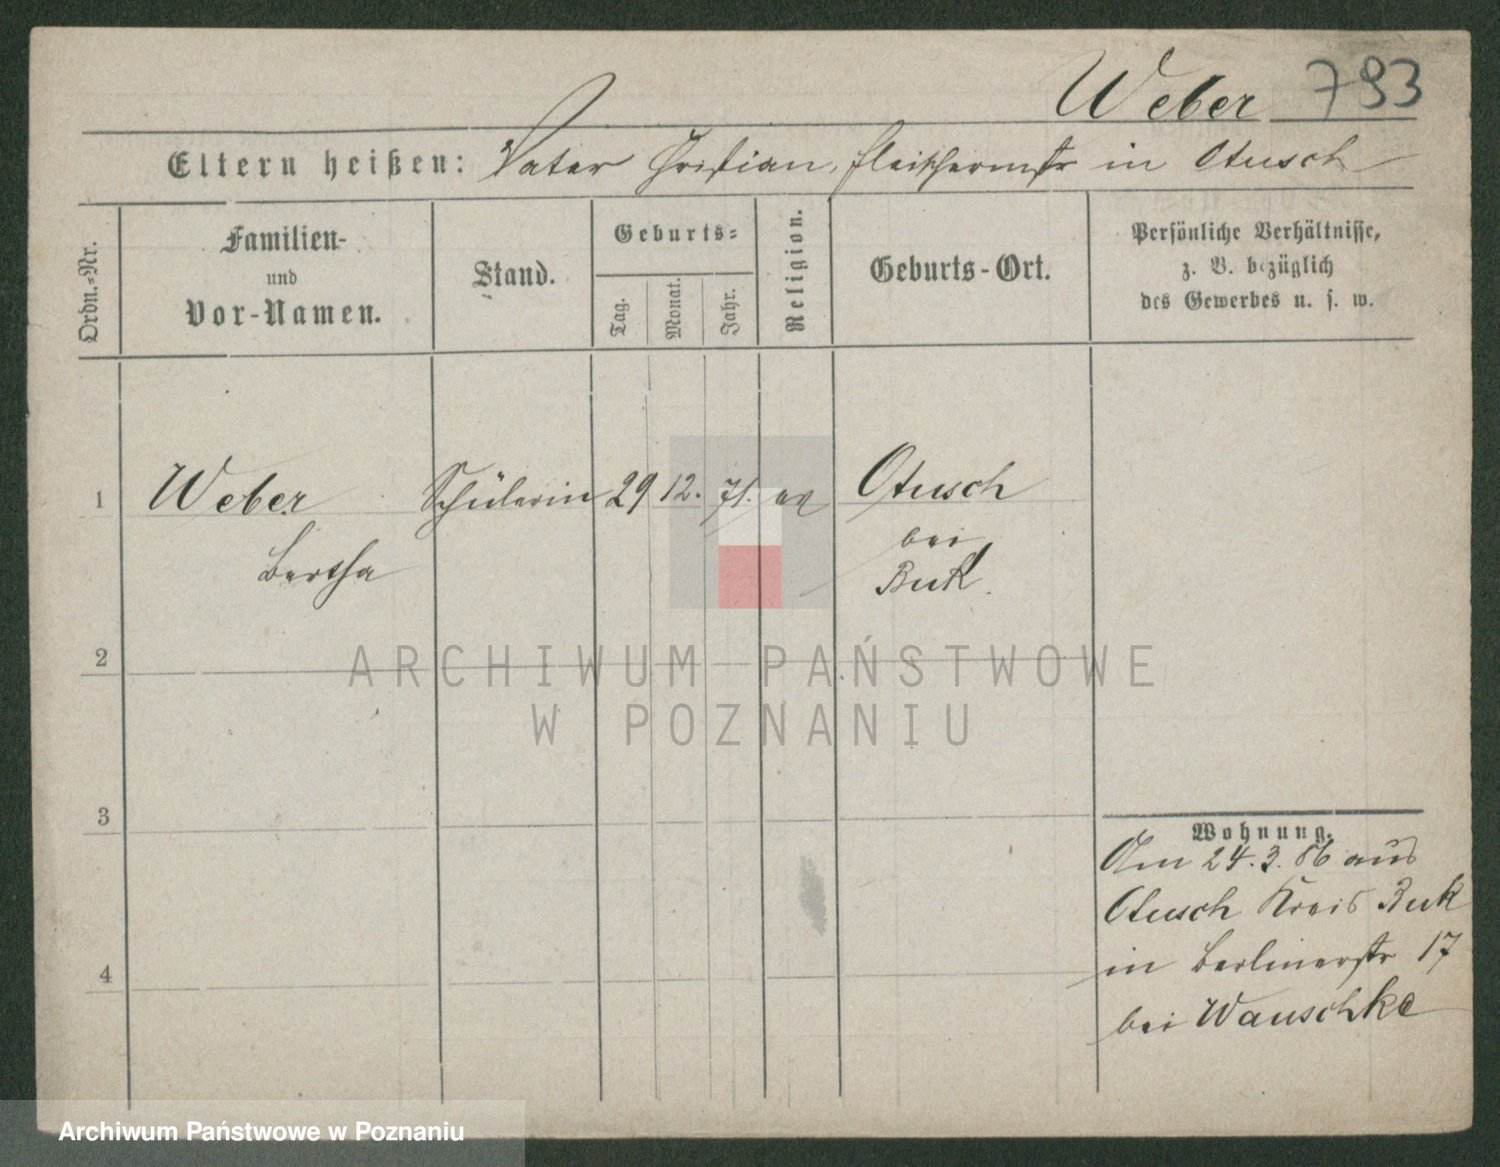 Weber 793
Eltern heißen: Vater Christian, Fleischermstr in Otusch
Ordn.-Nr.
Familien-
und
Vor-Namen.
Stand.
Geburts-
Tag.
Monat.
Jahr.
Religion.
Geburts-Ort.
Persönliche Verhältnisse,
z. B. bezüglich
des Gewerbes u. s. w.
1 Weber Schülerin 29 12. 71. ev Otusch
Bertha
bei
Buk.
2
3
4
Wohnung.
Am 24.3.86 aus
Otusch Kreis Buk
in Berlinerstr 17
bei Wauschke
ARCHIWUM PAŃSTWOWE
W POZNANIU
Archiwum Państwowe w Poznaniu